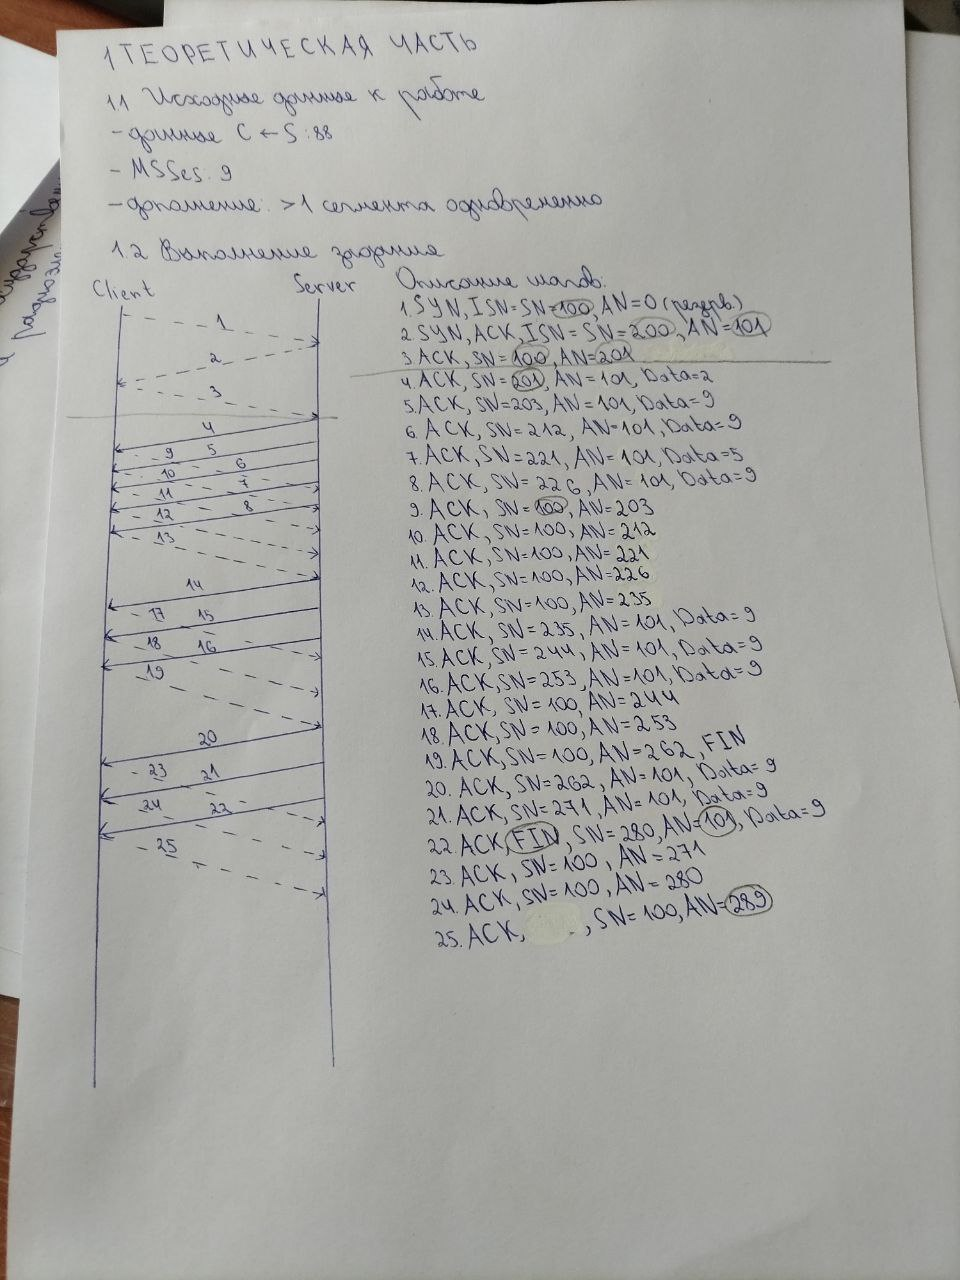 1 ТЕОРЕТИЧЕСКАЯ ЧАСТЬ
1.1 Исходные данные к работе
- данные C ← S: 88
- MSScs: 9
- дополнение: >1 сегмента одновременно
1.2 Выполнение задания
Client Server Описание шагов:
1. SYN, ISN=SN=100, AN=0 (резерв)
2. SYN, ACK, ISN=SN=200, AN=101
3. ACK, SN=100, AN=201
4. ACK, SN=201, AN=101, Data=2
5. ACK, SN=203, AN=101, Data=9
6. ACK, SN=212, AN=101, Data=9
7. ACK, SN=221, AN=101, Data=5
8. ACK, SN=226, AN=101, Data=9
9. ACK, SN=100, AN=203
10. ACK, SN=100, AN=212
11. ACK, SN=100, AN=221
12. ACK, SN=100, AN=226
13. ACK, SN=100, AN=235
14. ACK, SN=235, AN=101, Data=9
15. ACK, SN=244, AN=101, Data=9
16. ACK, SN=253, AN=101, Data=9
17. ACK, SN=100, AN=244
18. ACK, SN=100, AN=253
19. ACK, SN=100, AN=262, FIN
20. ACK, SN=262, AN=101, Data=9
21. ACK, SN=271, AN=101, Data=9
22. ACK, FIN, SN=280, AN=101, Data=9
23. ACK, SN=100, AN=271
24. ACK, SN=100, AN=280
25. ACK, , SN=100, AN=289
1
2
3
4
9 5
6
10 7
11 8
12
13
14
17 15
18 16
19
20
23 21
24 22
25